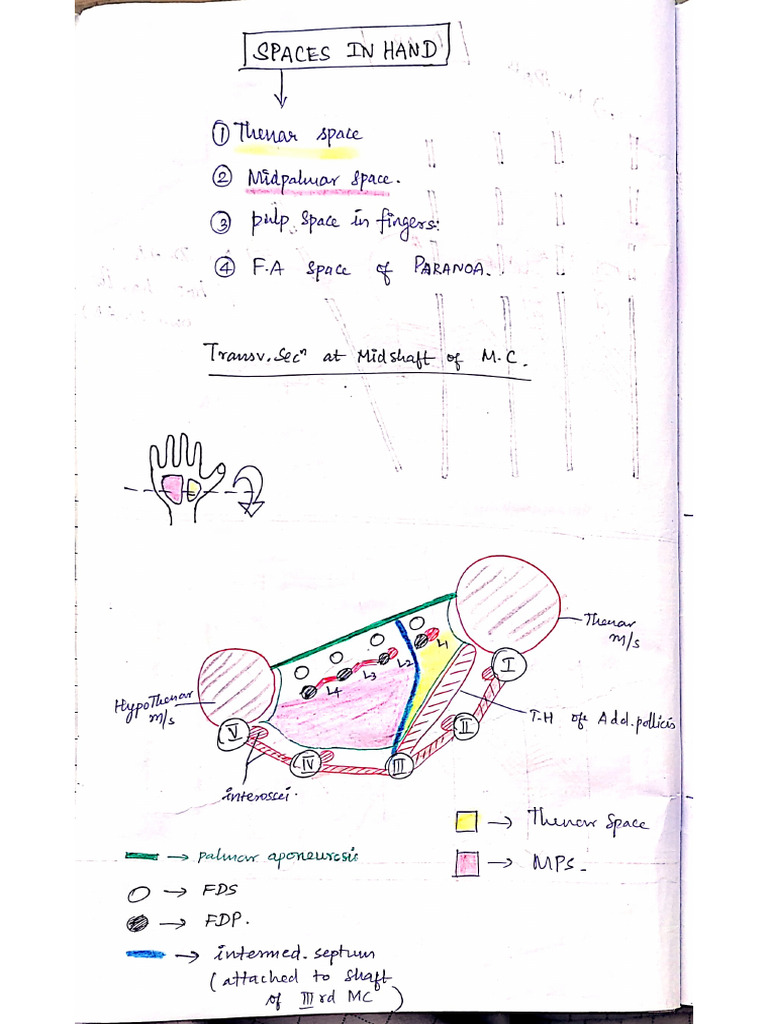 SPACES IN HAND
① Thenar space
② Midpalmar space.
③ pulp space in fingers:
④ F.A space of PARANOA.
Transv. Secⁿ at Midshaft of M.C.
Thenar
m/s
I
L1
L2
L3
L4
HypoThenar
m/s
T.H of Add. pollicis
II
V
IV
III
interossei.
→ Thenar Space
→ palmar aponeurosis
→ MPS.
→ FDS
→ FDP.
→ intermed. septum
(attached to shaft
of III rd MC)